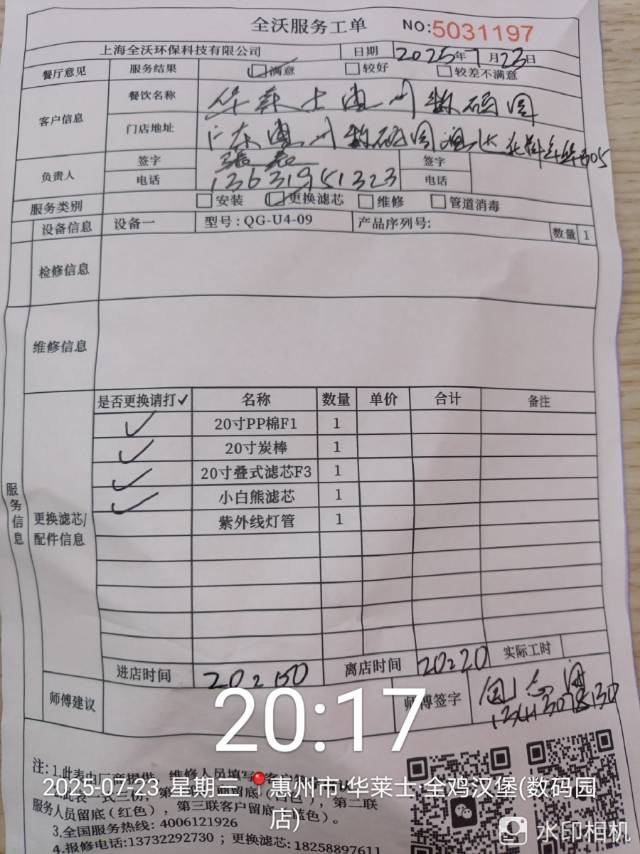 全沃服务工单 NO:5031197
上海全沃环保科技有限公司 日期 2025年7月23日
餐厅意见 服务结果 满意 较好 较差不满意
客户信息 餐饮名称 华莱士惠州数码园
门店地址 广东惠州数码园
负责人 签字 签字
电话 13631951323 电话
服务类别 安装 更换滤芯 维修 管道消毒
设备信息 设备一 型号:QG-U4-09 产品序列号: 数量 1
检修信息
维修信息
服务信息
更换滤芯/配件信息
是否更换请打✓ 名称 数量 单价 合计 备注
✓ 20寸PP棉F1 1
✓ 20寸炭棒 1
✓ 20寸叠式滤芯F3 1
✓ 小白熊滤芯 1
紫外线灯管 1
进店时间 离店时间 2020 实际工时
师傅建议 师傅签字
20:17
2025-07-23 星期三 惠州市·华莱士·全鸡汉堡(数码园店)
注:1.此表由厂商提供
服务人员留底(红色),第三联客户留底
3.全国服务热线:4006121926
4.报修电话:13732292730;更换滤芯:18258897611
水印相机